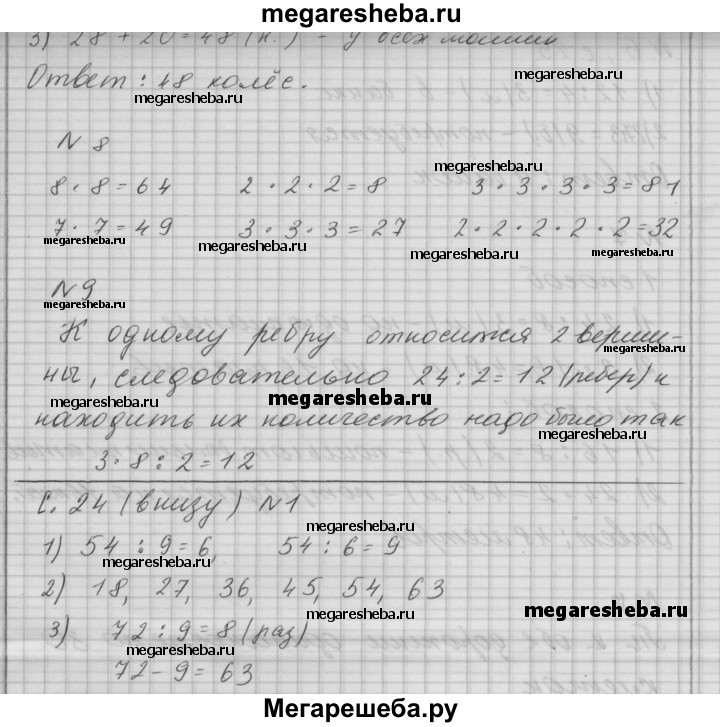 megaresheba.ru
3) 28 + 20 = 48 (к.) - у всех машин
Ответ: 48 колёс.
megaresheba.ru
megaresheba.ru
N 8
megaresheba.ru
8 · 8 = 64   2 · 2 · 2 = 8   3 · 3 · 3 · 3 = 81
7 · 7 = 49   3 · 3 · 3 = 27   2 · 2 · 2 · 2 · 2 = 32
megaresheba.ru megaresheba.ru megaresheba.ru
N 9
megaresheba.ru
К одному ребру относится 2 верши-
megaresheba.ru
ны, следовательно 24 : 2 = 12 (ребер) и
megaresheba.ru megaresheba.ru
находить их количество надо было так
megaresheba.ru
3 · 8 : 2 = 12
С. 24 (внизу) N 1
megaresheba.ru
1) 54 : 9 = 6,   54 : 6 = 9
megaresheba.ru megaresheba.ru
2) 18, 27, 36, 45, 54, 63
megaresheba.ru megaresheba.ru
3) 72 : 9 = 8 (раз)
megaresheba.ru megaresheba.ru
72 - 9 = 63
Мегарешеба.ру